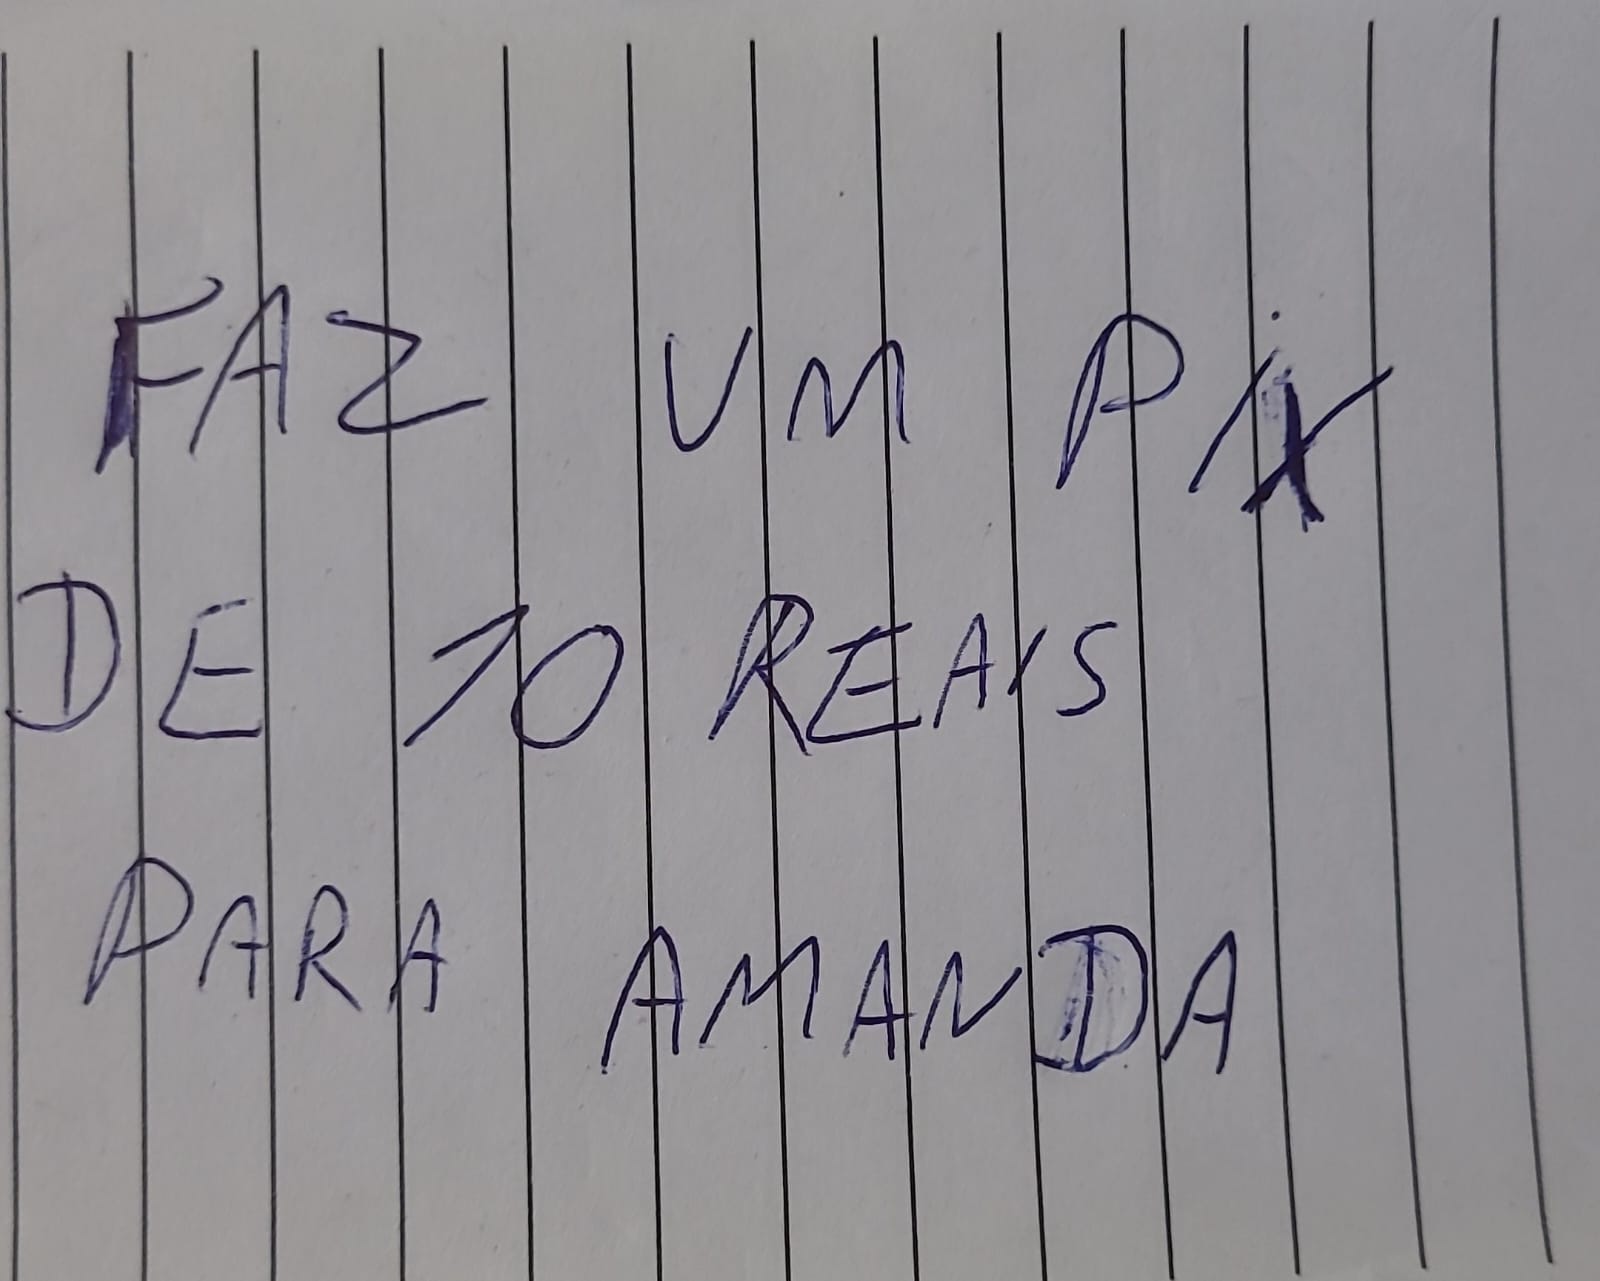 FAZ UM PIX
DE 10 REAIS
PARA AMANDA